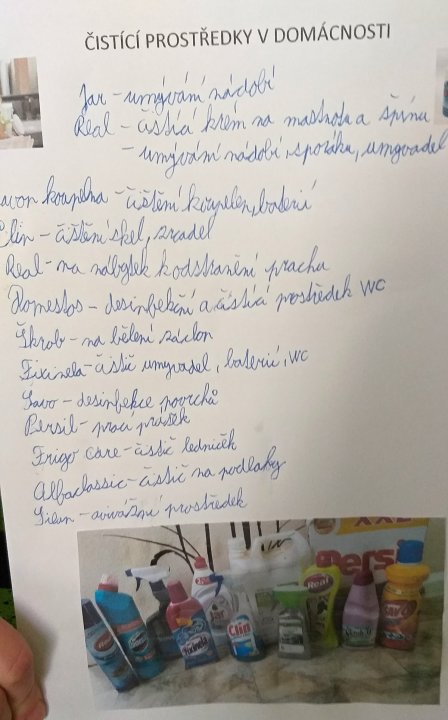 ČISTÍCÍ PROSTŘEDKY V DOMÁCNOSTI
Jar - umývání nádobí
Real - čistící krém na mastnotu a špínu
- umývání nádobí, sporáku, umyvadel
avon koupelna - čištění koupelen, baterií
Clin - čištění skel, zrcadel
Real - na nábytek k odstranění prachu
Domestos - desinfekční a čistící prostředek WC
Škrob - na bělení záclon
Fixinela - čistič umyvadel, baterií, WC
Savo - desinfekce povrchů
Persil - prací prášek
Frigo care - čistič ledniček
Alfaclassic - čistič na podlahy
Silan - avivážní prostředek
XXL
Persi
Real
Clin
Fixinela
Jar